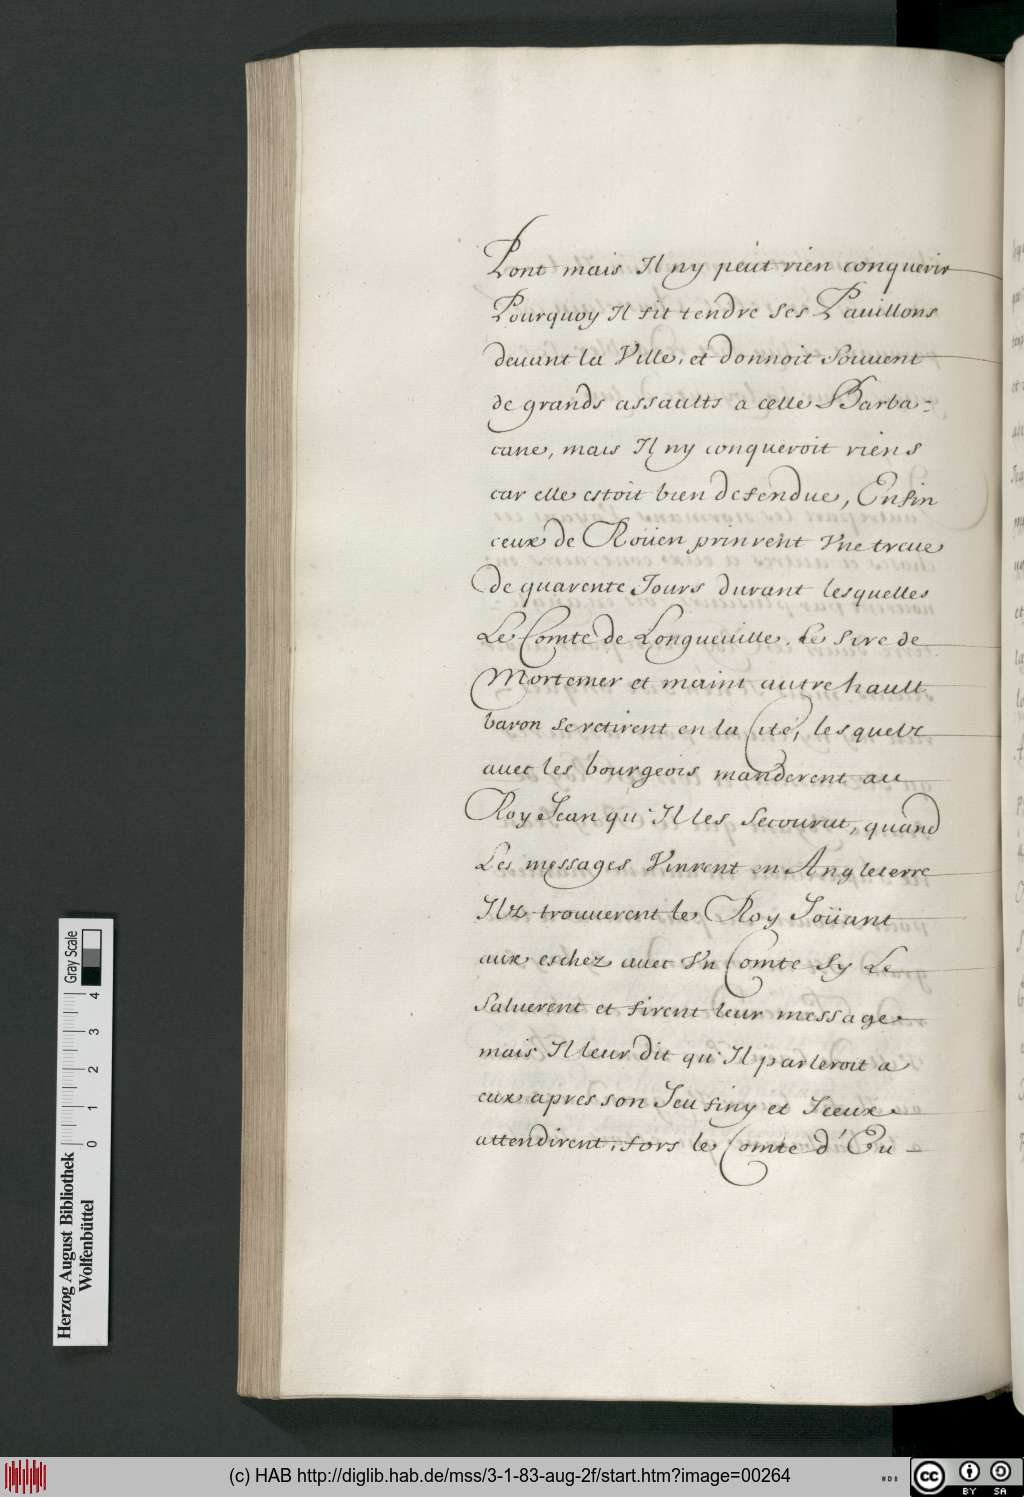 Pont mais Il ny peut rien conquerir
Pourquoy Il fit tendre ses Pauillons
deuant la Ville, et donnoit souuent
de grands assaults a celle Barba-
cane, mais Il ny conqueroit riens
car elle estoit bien defendue, Enfin
ceux de Roüen prinrent Vne treue
de quarente Jours durant lesquelles
Le Comte de Longueuille, Le sire de
Mortemer et maint autre hault
baron se retirent en la Cité, lesquelz
auec les bourgeois manderent au
Roy Jean qu'Il les secourut, quand
Les messages Vinrent en Angleterre
Ilz trouuerent le Roy Joüant
aux eschez auec Vn Comte sy Le
saluerent et firent leur message
mais Il leur dit qu'Il parleroit a
eux apres son Jeu finy et Iceux
attendirent, fors le Comte d'Eu
Herzog August Bibliothek
Wolfenbüttel
0 1 2 3 4
Gray Scale
(c) HAB http://diglib.hab.de/mss/3-1-83-aug-2f/start.htm?image=00264
WDB
cc BY SA